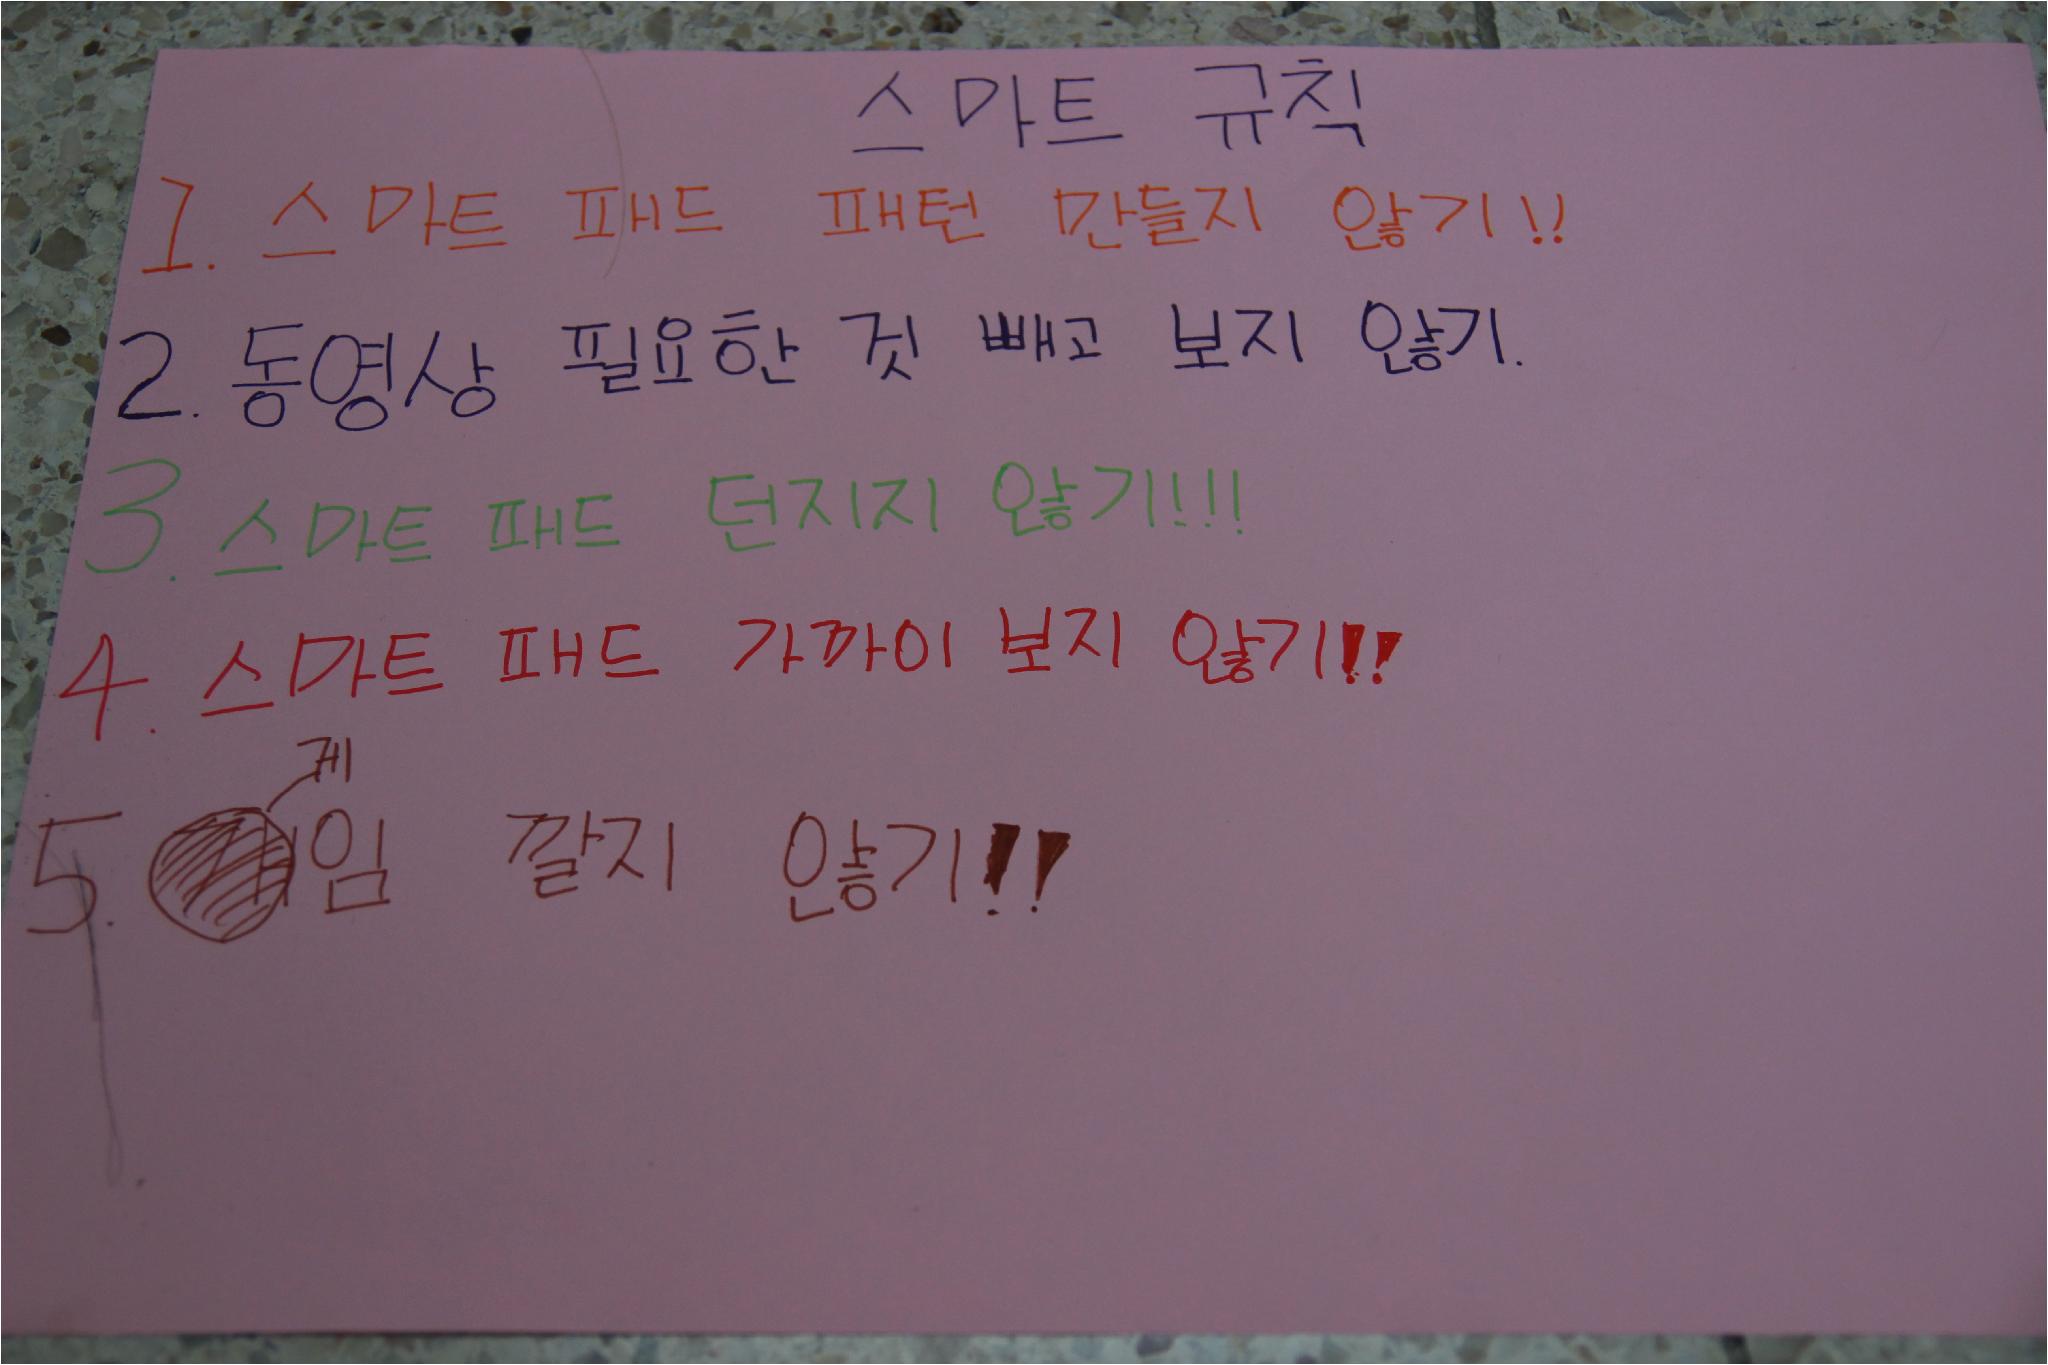 스마트 규칙
1. 스마트 패드 패턴 만들지 않기!!
2. 동영상 필요한 것 빼고 보지 않기.
3. 스마트 패드 던지지 않기!!!
4. 스마트 패드 가까이 보지 않기!!
5. 게임 깔지 않기!!